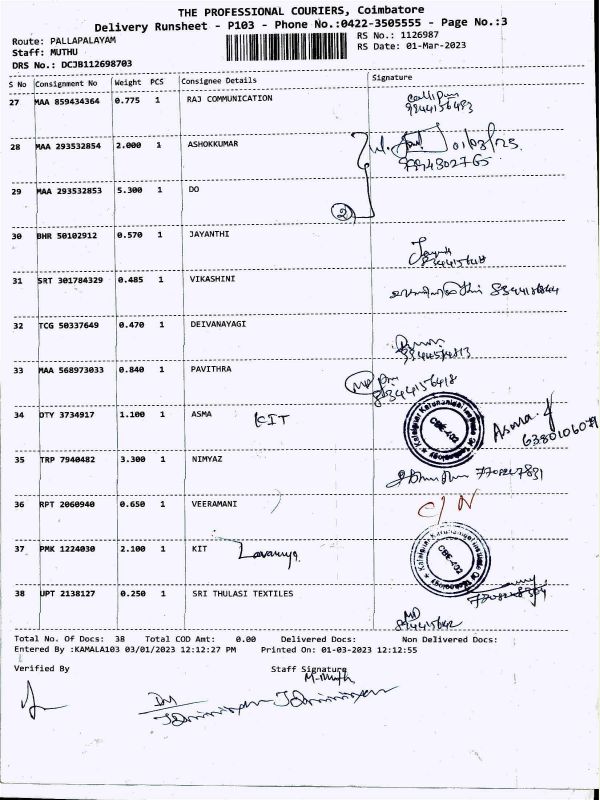 THE PROFESSIONAL COURIERS, Coimbatore
Delivery Runsheet - P103 - Phone No.:0422-3505555 - Page No.:3
Route: PALLAPALAYAM
RS No.: 1126987
Staff: MUTHU
RS Date: 01-Mar-2023
DRS No.: DCJB112698703
S No Consignment No Weight PCS Consignee Details Signature
27 MAA 859434364 0.775 1 RAJ COMMUNICATION
28 MAA 293532854 2.000 1 ASHOKKUMAR
01/03/23
9994302765
29 MAA 293532853 5.300 1 DO
2
30 BHR 50102912 0.570 1 JAYANTHI
31 SRT 301784329 0.485 1 VIKASHINI
32 TCG 50337649 0.470 1 DEIVANAYAGI
33 MAA 568973033 0.840 1 PAVITHRA
8344156418
34 DTY 3734917 1.100 1 ASMA KIT
Asma
35 TRP 7940482 3.300 1 NIMYAZ
36 RPT 2060940 0.650 1 VEERAMANI C/N
37 PMK 1224030 2.100 1 KIT Lavanya
38 UPT 2138127 0.250 1 SRI THULASI TEXTILES
Total No. Of Docs: 38 Total COD Amt: 0.00 Delivered Docs: Non Delivered Docs:
Entered By :KAMALA103 03/01/2023 12:12:27 PM Printed On: 01-03-2023 12:12:55
Verified By Staff Signature
M.Muth